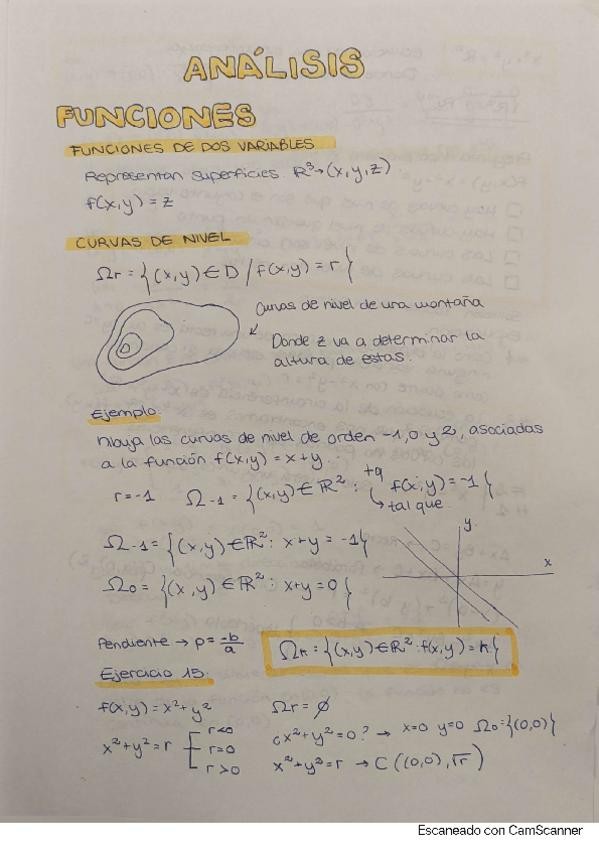 ANÁLISIS
FUNCIONES
FUNCIONES DE DOS VARIABLES
Representan superficies. R³→(x,y,z)
f(x,y) = z
CURVAS DE NIVEL
Ωr = {(x,y) ∈ D / f(x,y) = r}
Curvas de nivel de una montaña
Donde z va a determinar la
altura de estas.
Ejemplo:
Dibuja las curvas de nivel de orden -1, 0 y 2, asociadas
a la función f(x,y) = x+y.
r=-1 Ω-1 = {(x,y) ∈ ℝ² : f(x,y) = -1}
tq
↳ tal que
Ω-1 = {(x,y) ∈ ℝ² : x+y = -1}
y
x
Ω0 = {(x,y) ∈ ℝ² : x+y = 0}
Pendiente → p = -b/a
Ωk = {(x,y) ∈ ℝ² : f(x,y) = k}
Ejercicio 15:
f(x,y) = x²+y² Ωr = ∅
x²+y² = r r<0 r=0 r>0
¿x²+y²=0? → x=0 y=0 Ω0={(0,0)}
x²+y²=r → C((0,0),√r)
Escaneado con CamScanner